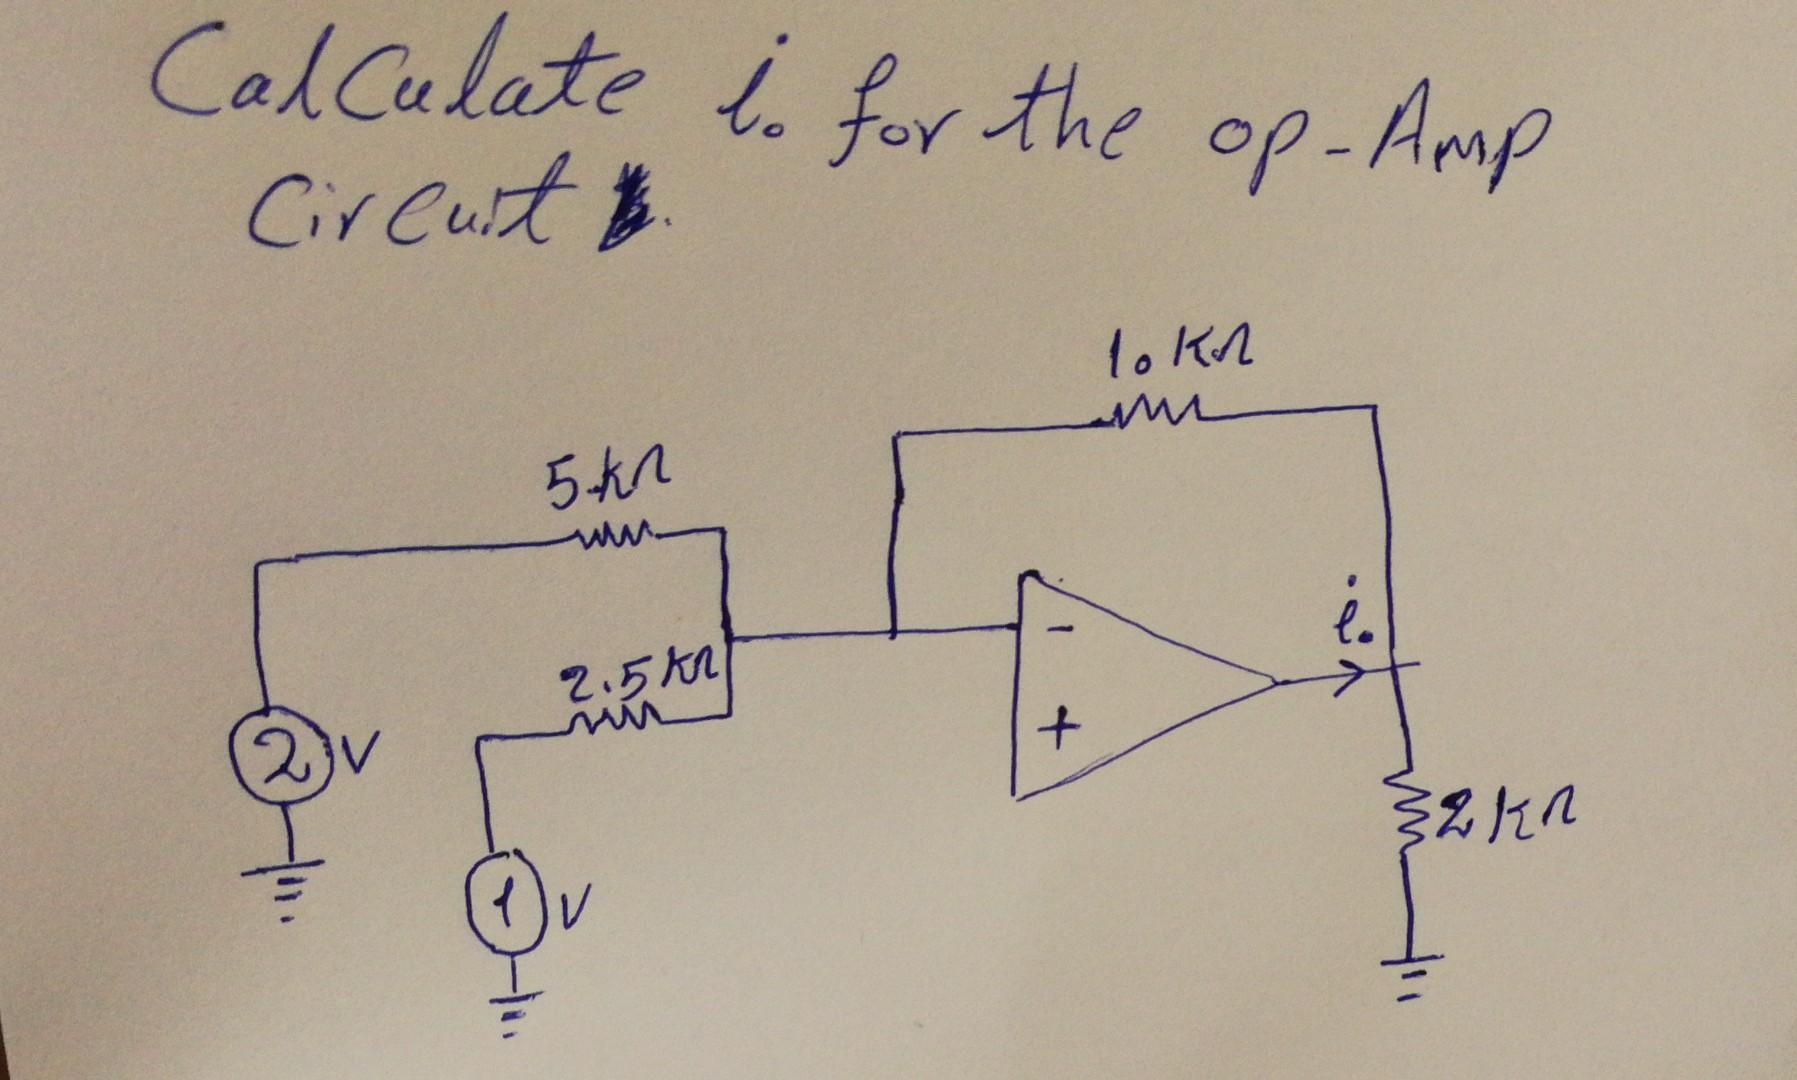 Calculate i₀ for the op-Amp
Circuit
10 KΩ
5 kΩ
2.5 KΩ
-
+
i₀
2 V
1 V
2 KΩ